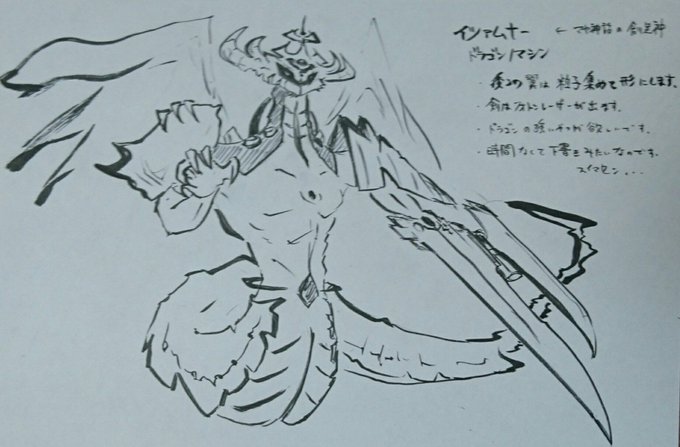 イツァムナー ← マヤ神話の創造神
ドラゴン/マシン
・後ろの翼は粒子集めて形にします。
・剣はフォトンレーザーが出ます。
・ドラゴンの強いやつが欲しいです。
・時間なくて下書きみたいなのです。
スイマセン...